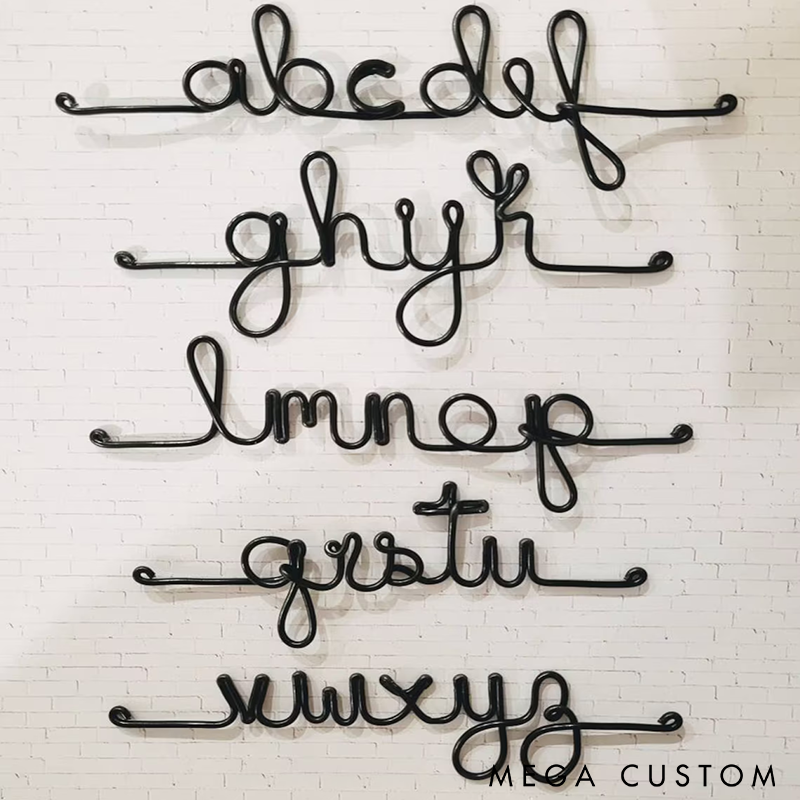 abcdef
ghijk
lmnop
qrstu
vwxyz
MEGA CUSTOM